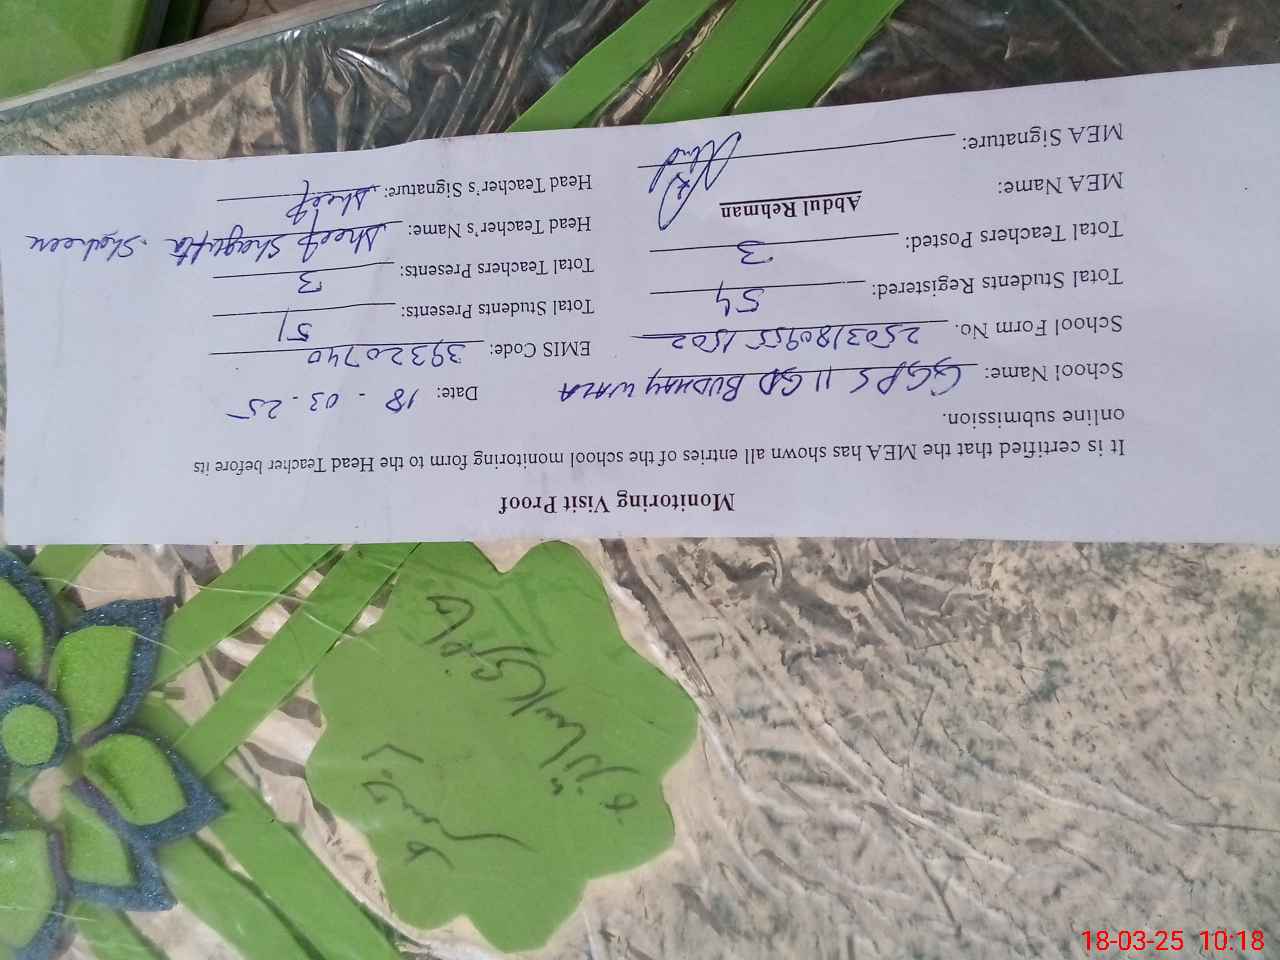 Monitoring Visit Proof
It is certified that the MEA has shown all entries of the school monitoring form to the Head Teacher before its
online submission.
School Name: GGPS 11 GD BUDHAY WALA Date: 18 - 03 - 25
School Form No. 2503180955 1502 EMIS Code: 39320740
Total Students Registered: 54 Total Students Presents: 51
Total Teachers Posted: 3 Total Teachers Presents: 3
MEA Name: Abdul Rehman Head Teacher's Name: Shagufta Shaheen
MEA Signature: Head Teacher's Signature:
18-03-25 10:18